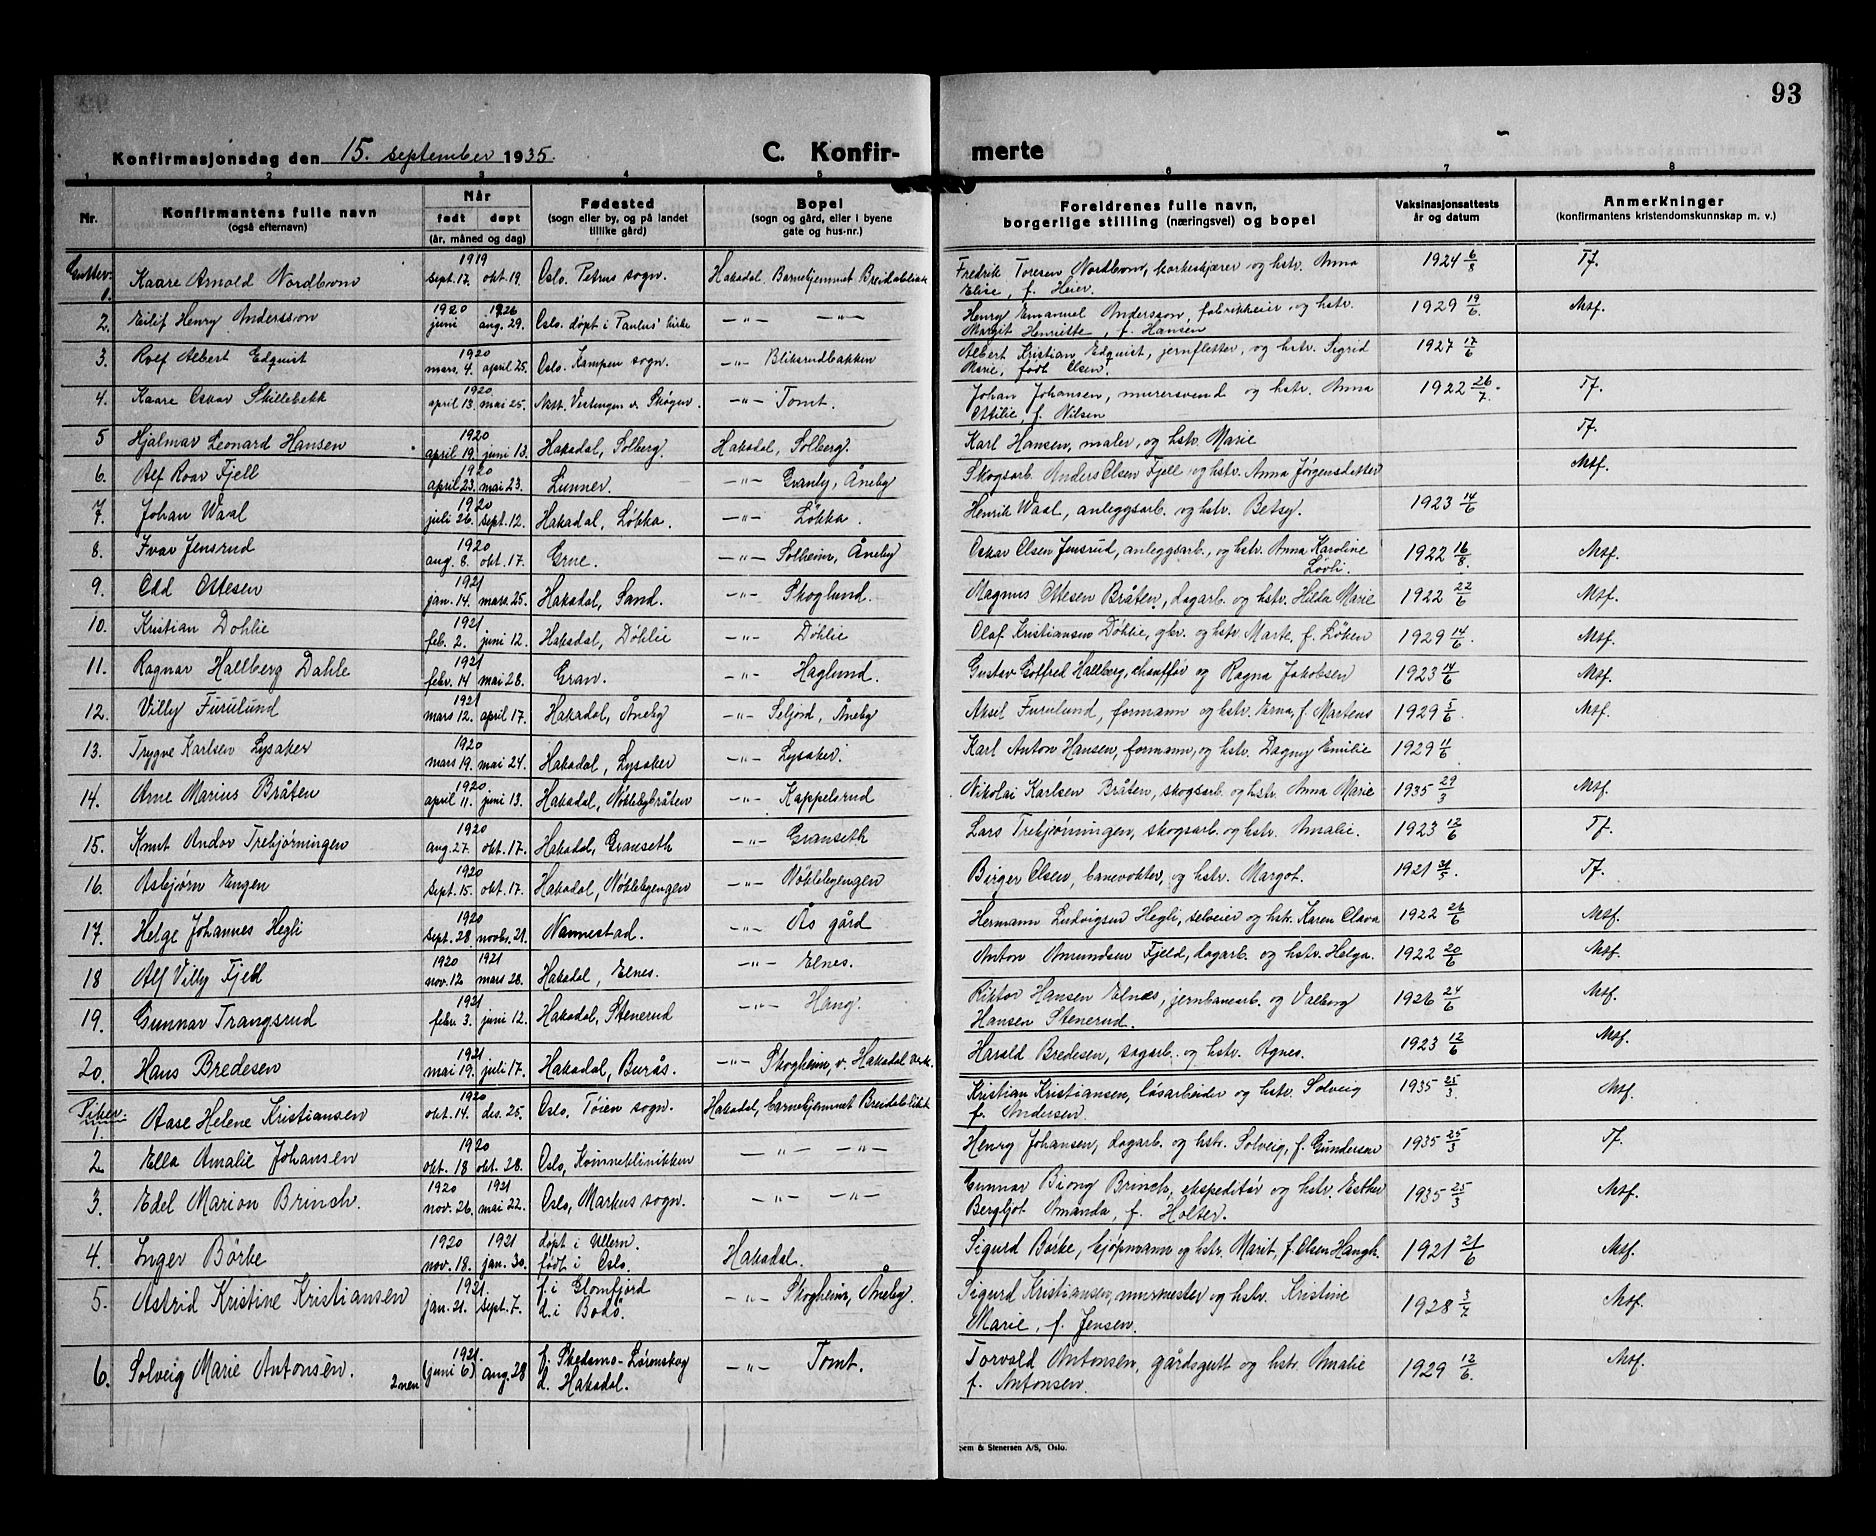 93
Konfirmasjonsdag den 15. september 1935.
C. Konfir-
merte
1 2 3 4 5 6 7 8
Nr.
Konfirmantens fulle navn
(også efternavn)
Når
født døpt
(år, måned og dag)
Fødested
(sogn eller by, og på landet
tillike gård)
Bopel
(sogn og gård, eller i byene
gate og hus-nr.)
Foreldrenes fulle navn,
borgerlige stilling (næringsvei) og bopel
Vaksinasjonsattests
år og datum
Anmerkninger
(konfirmantens kristendomskunnskap m. v.)
Gutter:
1. Kaare Arnold Nordbrom 1919 sept. 17. okt. 19. Oslo. Petrus sogn. Hakadal. Barnehjemmet Breidablikk Fredrik Toresen Nordbrom, korkeskjærer og hstr. Anna 1924 6/8 Tf.
Elise, f. Heier.
2. Eilif Henry Anderssson 1920 juni 1926 aug. 29. Oslo. døpt i Paulus' kirke -"- -"- Henry Emanuel Andersson, fabrikkeier, og hstr. 1929 19/6. Msf.
Margit Henriette, f. Hansen
3. Rolf Albert Edquist 1920 mars. 4. april 25. Oslo. Kampen sogn. -"- Bliksrudbakken Albert Kristian Edquist, jernfletter, og hstr. Sigrid 1927 17/6
Marie, født Olsen.
4. Kaare Oskar Skillebekk 1920 april 13. mai 25. Nitt. Vestengen v. Skøgen. -"- Tomt. Johan Johansen, murersvend og hstr. Anna 1922 26/7. Tf.
Ottilie, f. Nilsen
5 Hjalmar Leonard Hansen 1920 april 19. juni 13. Hakadal, Solberg. Hakadal, Solberg. Karl Hansen, maler, og hstr. Marie Tf.
6. Alf Roar Fjell 1920 april 23. mai 23. Lunner. -"- Granly, Åneby Skogsarb. Anders Olsen Fjell og hstr. Anna Jørgensdatter Msf.
7. Johan Waal 1920 juli 26. sept. 12. Hakadal, Løkka. -"- Løkka. Henrik Waal, anleggsarb. og hstr. Betsy. 1923 14/6
8. Ivar Jensrud 1920 aug. 8. okt. 17. Grue. -"- Solheim, Åneby Oskar Olsen Jensrud, anleggsarb., og hstr. Anna Karoline 1922 16/8. Msf.
Lovli.
9. Odd Ottesen 1921 jan. 14. mars. 25. Hakadal, Sand. -"- Skoglund. Magnus Ottesen Bråten, dagarb. og hstr. Hilda Marie 1922 22/6 Msf.
10. Kristian Döhlie 1921 feb. 2. juni 12. Hakadal, Döhlie -"- Döhlie Olaf Kristiansen Döhlie, gbr. og hstr. Marte, f. Løken 1929 14/6. Msf.
11. Ragnar Hallberg Dahle 1921 febr. 14 mai 28. Gran. -"- Haglund. Gustav Gotfred Hallberg, chauffør og Ragna Jakobsen 1923 14/6 Msf.
12. Villy Furulund 1921 mars 12. april 17. Hakadal, Åneby -"- Seljord, Åneby Aksel Furulund, formann og hstr. Erna, f. Martens 1929 5/6. Msf.
13. Trygve Karlsen Lysaker 1920 mars 19. mai 24. Hakadal, Lysaker -"- Lysaker. Karl Anton Hansen, formann, og hstr. Dagny Emilie 1929 11/6
14. Arne Marius Bråten 1920 april 11. juni 13. Hakadal, Nøklebybråten -"- Kappelsrud Nikolai Karlsen Bråten, skogsarb. og hstr. Anna Marie 1935 29/3 Msf.
15. Knut Andor Trehjørningen 1920 aug. 27. okt. 17. Hakadal, Granseth -"- Granseth Lars Trehjørningen, skogsarb. og hstr. Amalie. 1923 12/6 Tf.
16. Asbjørn Engen 1920 sept. 15. okt. 17. Hakadal, Nøklebyengen -"- Nøklebyengen Birger Olsen, banevokter, og hstr. Margot. 1921 31/5. Tf.
17. Helge Johannes Hegli 1920 sept. 28 novbr. 21. Nannestad. -"- Ås gård Hermann Ludvigsen Hegli, selveier og hstr. Karen Olava 1922 26/6 Msf.
18 Alf Villy Fjell 1920 nov. 12 1921 mars 28. Hakadal, Elnes. -"- Elnes. Anton Amundsen Fjeld, dagarb. og hstr. Helga. 1922 20/6 Msf.
19. Gunnar Trangsrud 1921 febr. 3. juni 12. Hakadal, Stenerud -"- Haug. Riktor Hansen Elnes, jernbanearb. og Valborg 1926 24/6 Msf.
Hansen Stenerud.
20. Hans Bredesen 1921 mai 19. juli 17. Hakadal, Burås. -"- Skogheim, v. Hakadal Verk. Harald Bredesen, sagarb. og hstr. Agnes. 1923 12/6 Msf.
Piker:
1. Aase Helene Kristiansen 1920 okt. 14. des. 25. Oslo, Tøien sogn. Hakadal, barnehjemmet Breidablikk Kristian Kristiansen, løsarbeider og hstr. Solveig 1935 25/3. Msf.
f. Andersen.
2 Ella Amalie Johansen 1920 okt. 18 okt. 28. Oslo, Kvinneklinikken -"- -"- Henry Johansen, dagarb. og hstr. Solveig, f. Gundersen 1935 25/3 Tf.
3. Edel Marion Brinch. 1920 nov. 26. 1921 mai 22. Oslo, Markus sogn. -"- -"- Gunnar Biong Brinch, ekspeditør og hstr. Esther 1935 25/3 Msf.
Bergljot Amanda, f. Holter.
4. Inger Börke 1920 nov. 18. 1921 jan. 30. døpt i Ullern. født i Oslo. Hakadal. Sigurd Børke, kjøpmann og hstr. Marit, f. Olsen Haugh. 1921 21/6 Msf.
5. Astrid Kristine Kristiansen 1921. jan. 21. sept. 7. f. i Glomfjord d. i Bodö. -"- Skogheim, Åneby. Sigurd Kristiansen, murmester og hstr. Kristine 1928 3/7 Msf.
Marie, f. Jensen.
6. Solveig Marie Antonsen. 2nen 1921. (juni 6) aug. 28 f. Skedsmo-Lørenskog d. Hakadal. -"- Tomt. Torvald Antonsen, gårdsgutt og hstr. Amalie 1929 12/6. Msf.
f. Antonsen.
Sem & Stenersen A/S, Oslo.